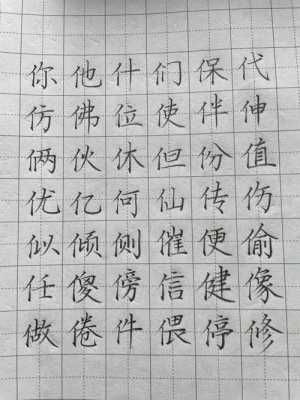 你他什们保代
仿佛位使伴伸
俩伙休但份值
优亿何仙传伤
似倾侧催便偷
任傻傍信健像
做倦件偎停修